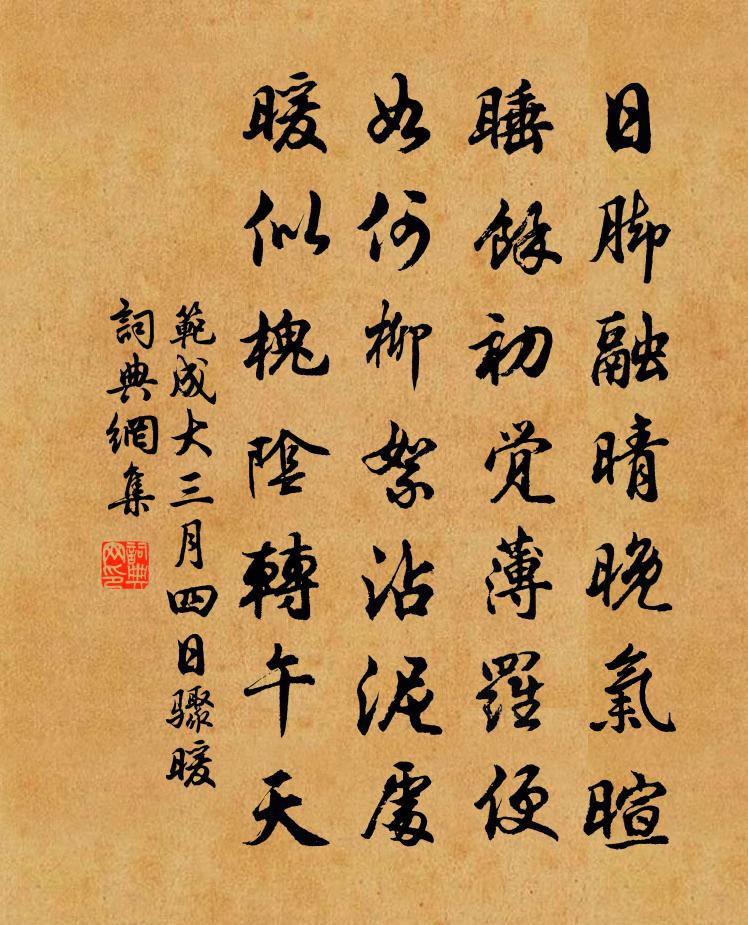 日脚融晴晚氣暄
睡餘初覺薄羅便
如何柳絮沾泥處
暖似槐陰轉午天
範成大三月四日驟暖
詞典網集
詞典網印